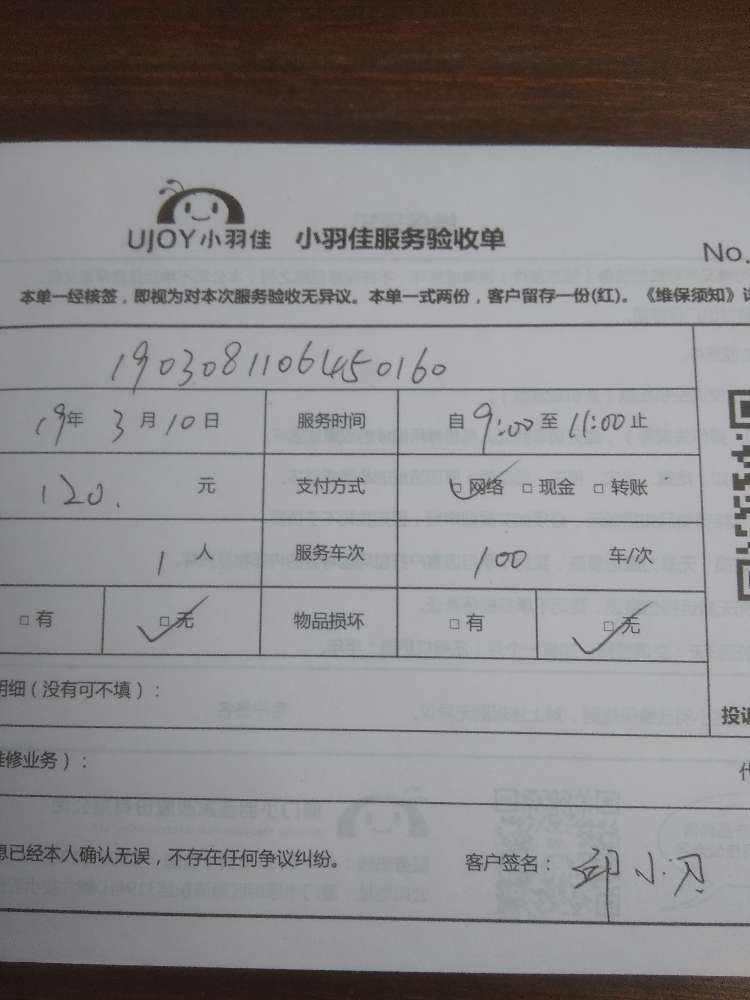 UJOY小羽佳 小羽佳服务验收单
No.
本单一经接签，即视为对本次服务验收无异议。本单一式两份，客户留存一份(红)。《维保须知》
19030811064450160
19年 3月10日 服务时间 自9:00至11:00止
120. 元 支付方式 □网络 □现金 □转账
1人 服务车次 100 车/次
□有 □无 物品损坏 □有 □无
明细（没有可不填）：
投诉
维修业务）：
息已经本人确认无误，不存在任何争议纠纷。 客户签名：邱小